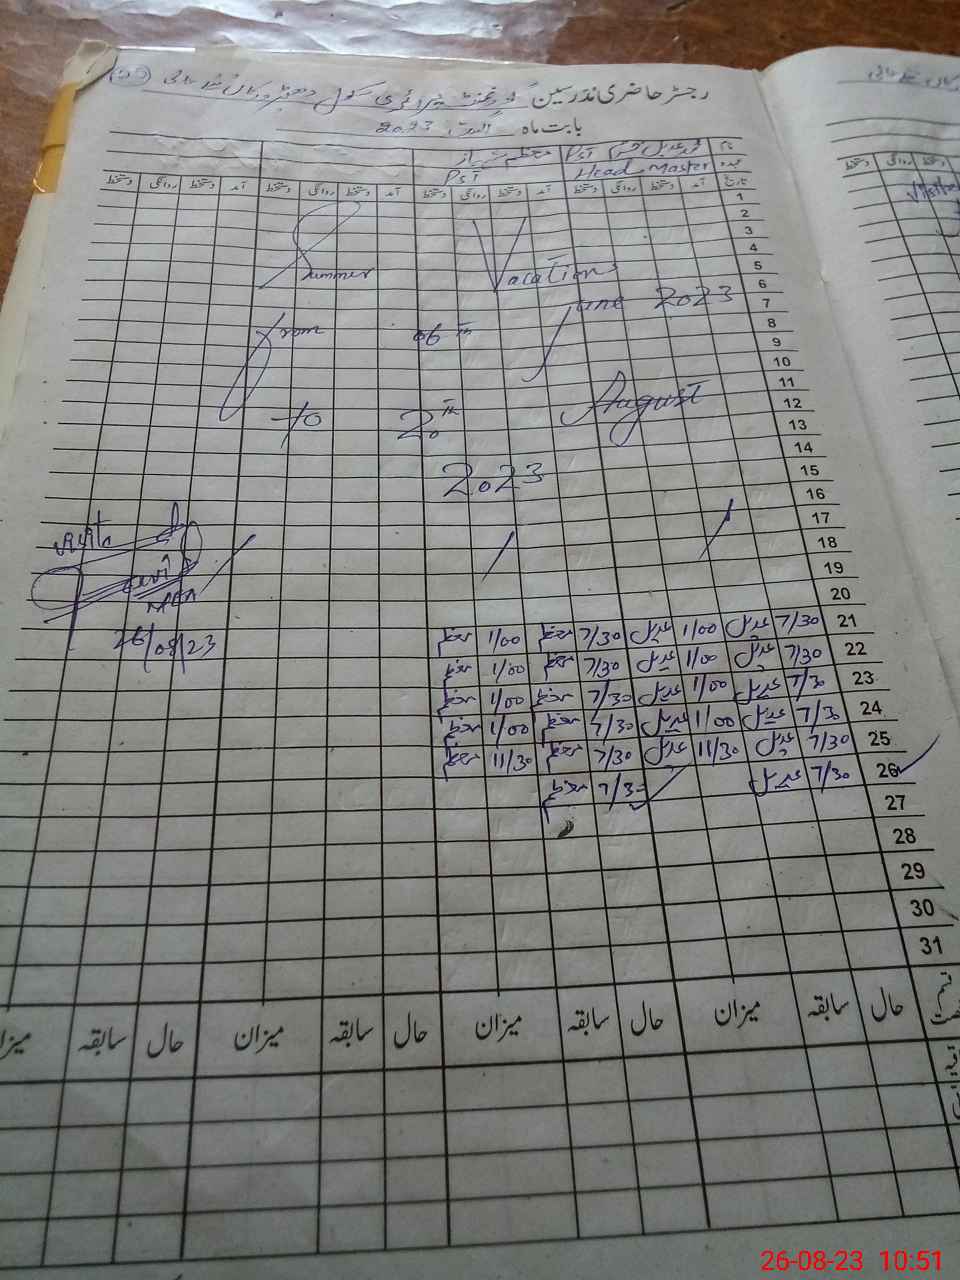 رجسٹر حاضری مدرسین گورنمنٹ پرائمری سکول
بابت ماہ اگست 2023
نام
PST
عہدہ Head Master PST
تاریخ آمد دستخط روانگی دستخط آمد دستخط روانگی دستخط آمد دستخط روانگی دستخط آمد دستخط روانگی دستخط
1
2
3
4
Summer Vacations
5
6
From 06th June 2023
7
8
9
10
11
to 20th August
12
13
14
2023
15
16
17
18
19
20
visited
26/08/23
21 7/30 عدیل 1/00 عدیل 7/30 1/00
22 7/30 عدیل 1/00 عدیل 7/30 1/00
23 7/30 عدیل 1/00 عدیل 7/30 1/00
24 7/30 عدیل 1/00 عدیل 7/30 1/00
25 7/30 عدیل 11/30 عدیل 7/30 11/30
26 7/30 عدیل 7/30
27
28
29
30
31
حال سابقہ میزان حال سابقہ میزان حال سابقہ میزان حال سابقہ
26-08-23 10:51